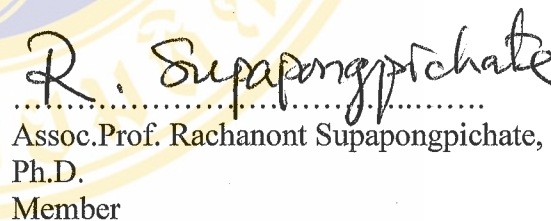 R. Supapongpichate
Assoc.Prof. Rachanont Supapongpichate,
Ph.D.
Member